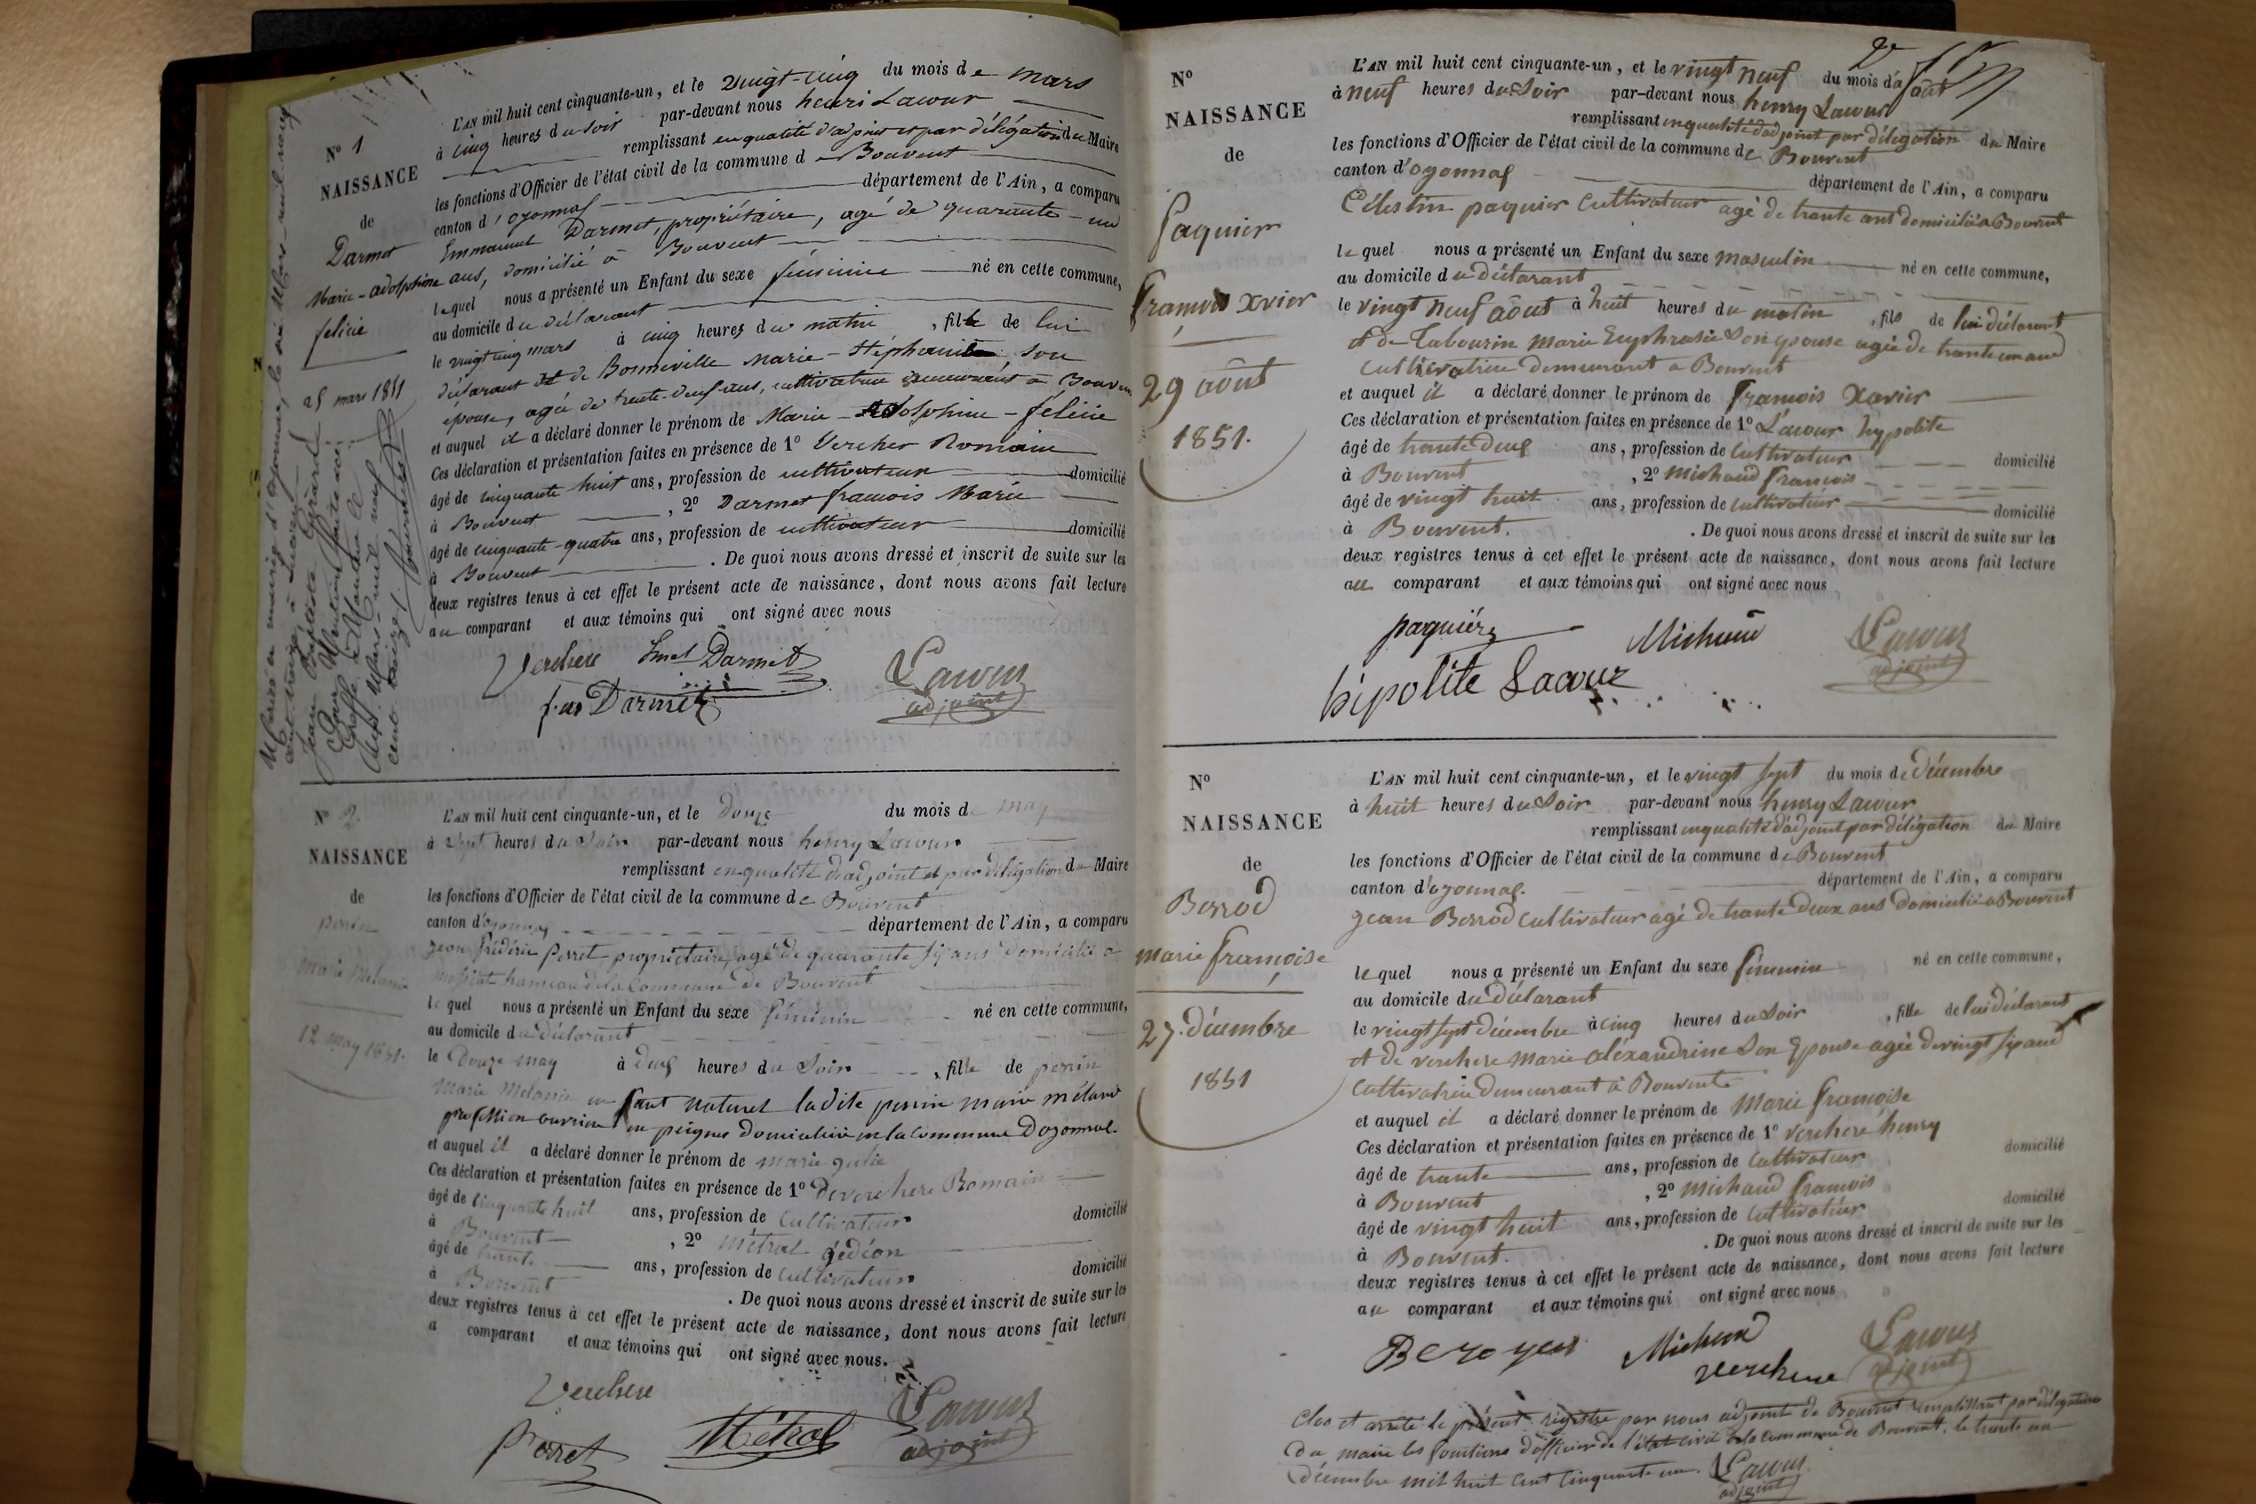 N° 1
NAISSANCE
de
Darmet
Marie-adolphine
felicie
25 mars 1851
L'AN mil huit cent cinquante-un, et le vingt-cinq du mois de mars
à cinq heures du soir par-devant nous henri Lacour
remplissant en qualité d'adjoint et par délégation du Maire
les fonctions d'Officier de l'état civil de la commune de Bouvent
canton d'oyonnax département de l'Ain, a comparu
Emmanuel Darmet, propriétaire, agé de quarante-un
ans, domicilié à Bouvent
lequel nous a présenté un Enfant du sexe féminin né en cette commune,
au domicile du déclarant
le vingt cinq mars à cinq heures du matin, fille de lui
déclarant et de Bonneville Marie-Stéphanie son
épouse, agée de trente-neuf ans, cultivatrice demeurant à Bouvent
et auquel il a déclaré donner le prénom de Marie-Adolphine-félicie
Ces déclaration et présentation faites en présence de 1° Vercher Romain
âgé de cinquante huit ans, profession de cultivateur domicilié
à Bouvent, 2° Darmet francois Marie
âgé de cinquante-quatre ans, profession de cultivateur domicilié
à Bouvent. De quoi nous avons dressé et inscrit de suite sur les
deux registres tenus à cet effet le présent acte de naissance, dont nous avons fait lecture
au comparant et aux témoins qui ont signé avec nous
Verchere Emel Darmet Lacour
f. ois Darmet adjoint
N° 2
NAISSANCE
de
perrin
marie Melanie
12 may 1851.
L'AN mil huit cent cinquante-un, et le douze du mois de may
à sept heures du soir par-devant nous henry Lacour
remplissant en qualité d'adjoint et par délégation du Maire
les fonctions d'Officier de l'état civil de la commune de Bouvent
canton d'oyonnax département de l'Ain, a comparu
jean frédéric perret propriétaire, agé de quarante six ans domicilié a
hameau de la Commune de Bouvent
lequel nous a présenté un Enfant du sexe féminin né en cette commune,
au domicile du déclarant
le Douze may à deux heures du Soir, fille de perrin
Marie Melanie enfant naturel ladite perrin marie mélanie
profession ouvrière en peignes domiciliée en la commune Doyonnax.
et auquel il a déclaré donner le prénom de marie julie
Ces déclaration et présentation faites en présence de 1° deverchere Romain
âgé de cinquante huit ans, profession de cultivateur domicilié
à Bouvent, 2° Métral gédéon
âgé de trante ans, profession de cultivateur domicilié
à Bouvent. De quoi nous avons dressé et inscrit de suite sur les
deux registres tenus à cet effet le présent acte de naissance, dont nous avons fait lecture
a comparant et aux témoins qui ont signé avec nous.
Verchere Lacour
Perret Métral adjoint
N°
NAISSANCE
de
paquier
francois xvier
29 août
1851.
L'AN mil huit cent cinquante-un, et le vingt neuf du mois d'août
à neuf heures du Soir par-devant nous henry Lacour
remplissant en qualité d'adjoint par délégation du Maire
les fonctions d'Officier de l'état civil de la commune de Bouvent
canton d'oyonnax département de l'Ain, a comparu
Célestin paquier cultivateur agé de trante ans domicilié a Bouvent
lequel nous a présenté un Enfant du sexe masculin né en cette commune,
au domicile du déclarant
le vingt neuf août à huit heures du matin, fils de lui déclarant
et de Tabourin marie Euphrasie Son epouse agée de trante un ans
cultivatrice demeurant a Bouvent
et auquel il a déclaré donner le prénom de francois Xavier
Ces déclaration et présentation faites en présence de 1° Lacour hypolite
âgé de trante deux ans, profession de cultivateur domicilié
à Bouvent, 2° Michaud francois
âgé de vingt huit ans, profession de cultivateur domicilié
à Bouvent. De quoi nous avons dressé et inscrit de suite sur les
deux registres tenus à cet effet le présent acte de naissance, dont nous avons fait lecture
au comparant et aux témoins qui ont signé avec nous
paquier Michaud Lacour
hipolite Lacour adjoint
N°
NAISSANCE
de
Berrod
marie françoise
27 décembre
1851
L'AN mil huit cent cinquante-un, et le vingt sept du mois de décembre
à huit heures du Soir par-devant nous henry Lacour
remplissant en qualité d'adjoint par délégation du Maire
les fonctions d'Officier de l'état civil de la commune de Bouvent
canton d'oyonnax. département de l'Ain, a comparu
jean Berrod cultivateur agé de trante deux ans domicilié a Bouvent
lequel nous a présenté un Enfant du sexe féminin né en cette commune,
au domicile du déclarant
le vingt sept décembre à cinq heures du Soir, fille de lui déclarant
et de verchere marie aléxandrine Son Epouse agée de vingt six ans
cultivatrice demeurant à Bouvent
et auquel il a déclaré donner le prénom de Marie françoise
Ces déclaration et présentation faites en présence de 1° verchere henry
âgé de trante ans, profession de cultivateur domicilié
à Bouvent, 2° michaud francois
âgé de vingt huit ans, profession de cultivateur domicilié
à Bouvent. De quoi nous avons dressé et inscrit de suite sur les
deux registres tenus à cet effet le présent acte de naissance, dont nous avons fait lecture
au comparant et aux témoins qui ont signé avec nous
Michaud Lacour
verchere adjoint
Clos et arrêté le présent régistre par nous adjoint de Bouvent remplissant par délégation
du maire les fonctions d'officier de l'état civil de la commune de Bouvent, le trante un
décembre mil huit cent cinquante un. Lacour
adjoint